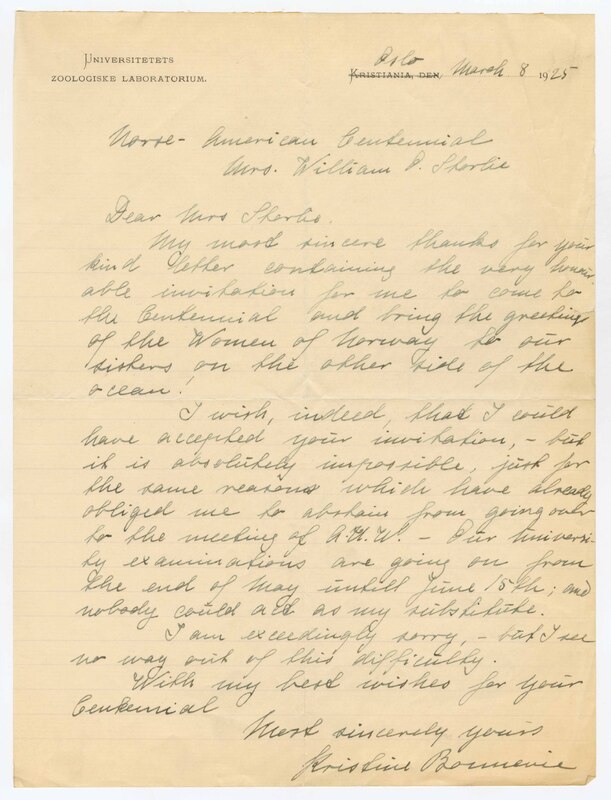 UNIVERSITETETS
ZOOLOGISKE LABORATORIUM.
Oslo
KRISTIANIA, DEN March 8 1925
Norse-American Centennial
Mrs. William O. Storlie
Dear Mrs Storlie.
My most sincere thanks for your
kind letter containing the very honour-
able invitation for me to come to
the Centennial and bring the greetings
of the Women of Norway to our
sisters on the other side of the
ocean!
I wish, indeed, that I could
have accepted your invitation, - but
it is absolutely impossible, just for
the same reasons which have already
obliged me to abstain from going over
to the meeting of A.U.W. - Our Universi-
ty examinations are going on from
the end of May untill June 15th; and
nobody could act as my substitute.
I am exceedingly sorry, - but I see
no way out of this difficulty.
With my best wishes for your
Centennial
Most sincerely yours
Kristine Bonnevie